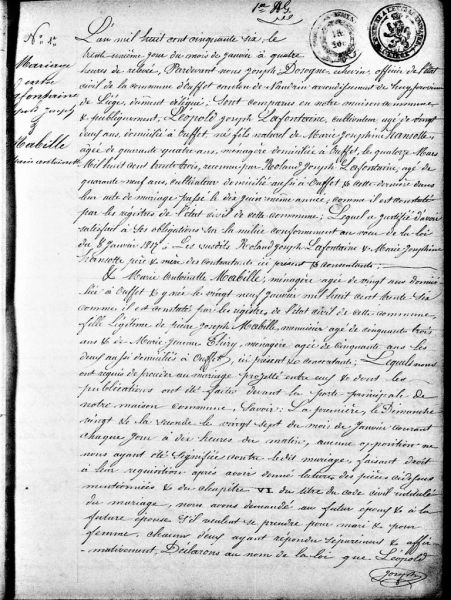 N° 1
Mariage
entre
Lafontaine
Léopold Joseph
&
Mabille
Marie Antoinette
L'an mil huit cent cinquante six le
trente unième jour du mois de janvier à quatre
heures de relevée, Pardevant nous Joseph Dosogne échevin, officier de l'état
civil de la commune d'Ouffet canton de Nandrin arrondissement de Huy province
de Liége, dûment délégué; Sont comparus en notre maison commune
& publiquement, Léopold Joseph Lafontaine, cultivateur âgé de vingt
deux ans, domicilié à Ouffet, né fils naturel de Marie Josephine
agée de quarante quatre ans, ménagère domiciliée à Ouffet, le quatorze Mars
Mil huit cent trente trois, reconnu par Roland Joseph Lafontaine, agé de
quarante neuf ans, cultivateur domicilié aussi à Ouffet & cette dernière dans
leur acte de mariage passé le dix juin même année, comme il est constaté
par les registres de l'état civil de cette commune; Lequel a justifié d'avoir
satisfait à ses obligations sur la milice conformément au vœu de la loi
du 8 Janvier 1817 & Les susdits Roland Joseph Lafontaine & Marie Joséphine
père & mère des contractants ici présent & consentants.
& Marie Antoinette Mabille, ménagère agée de vingt ans domici-
liée à Ouffet & y née le vingt neuf janvier mil huit cent trente six
comme il est constaté par les registres de l'état civil de cette commune,
fille légitime de pierre Joseph Mabille, menuisier agé de cinquante trois
ans & de Marie Jeanne Thiry, ménagère agée de cinquante ans les
deux aussi domiciliés à Ouffet, ici présent & consentants; Lesquels nous
ont requis de procéder au mariage projetté entre eux & dont les
publications ont été faites devant la porte principale de
notre maison commune, Savoir: La première, le Dimanche
vingt & la seconde le vingt sept du mois de Janvier courant
chaque jour à dix heures du matin, aucune opposition ne
nous ayant été signifiée contre le dit mariage, faisant droit
à leur réquisition après avoir donné lecture des pièces cidessus
mentionnées & du chapitre VI du titre du code civil intitulé
du mariage, nous avons demandé au futur époux & à la
future épouse s'il veulent se prendre pour mari & pour
femme, chacun d'eux ayant répondu séparément & affir-
mativement, Déclarons au nom de la loi que Léopold
Joseph